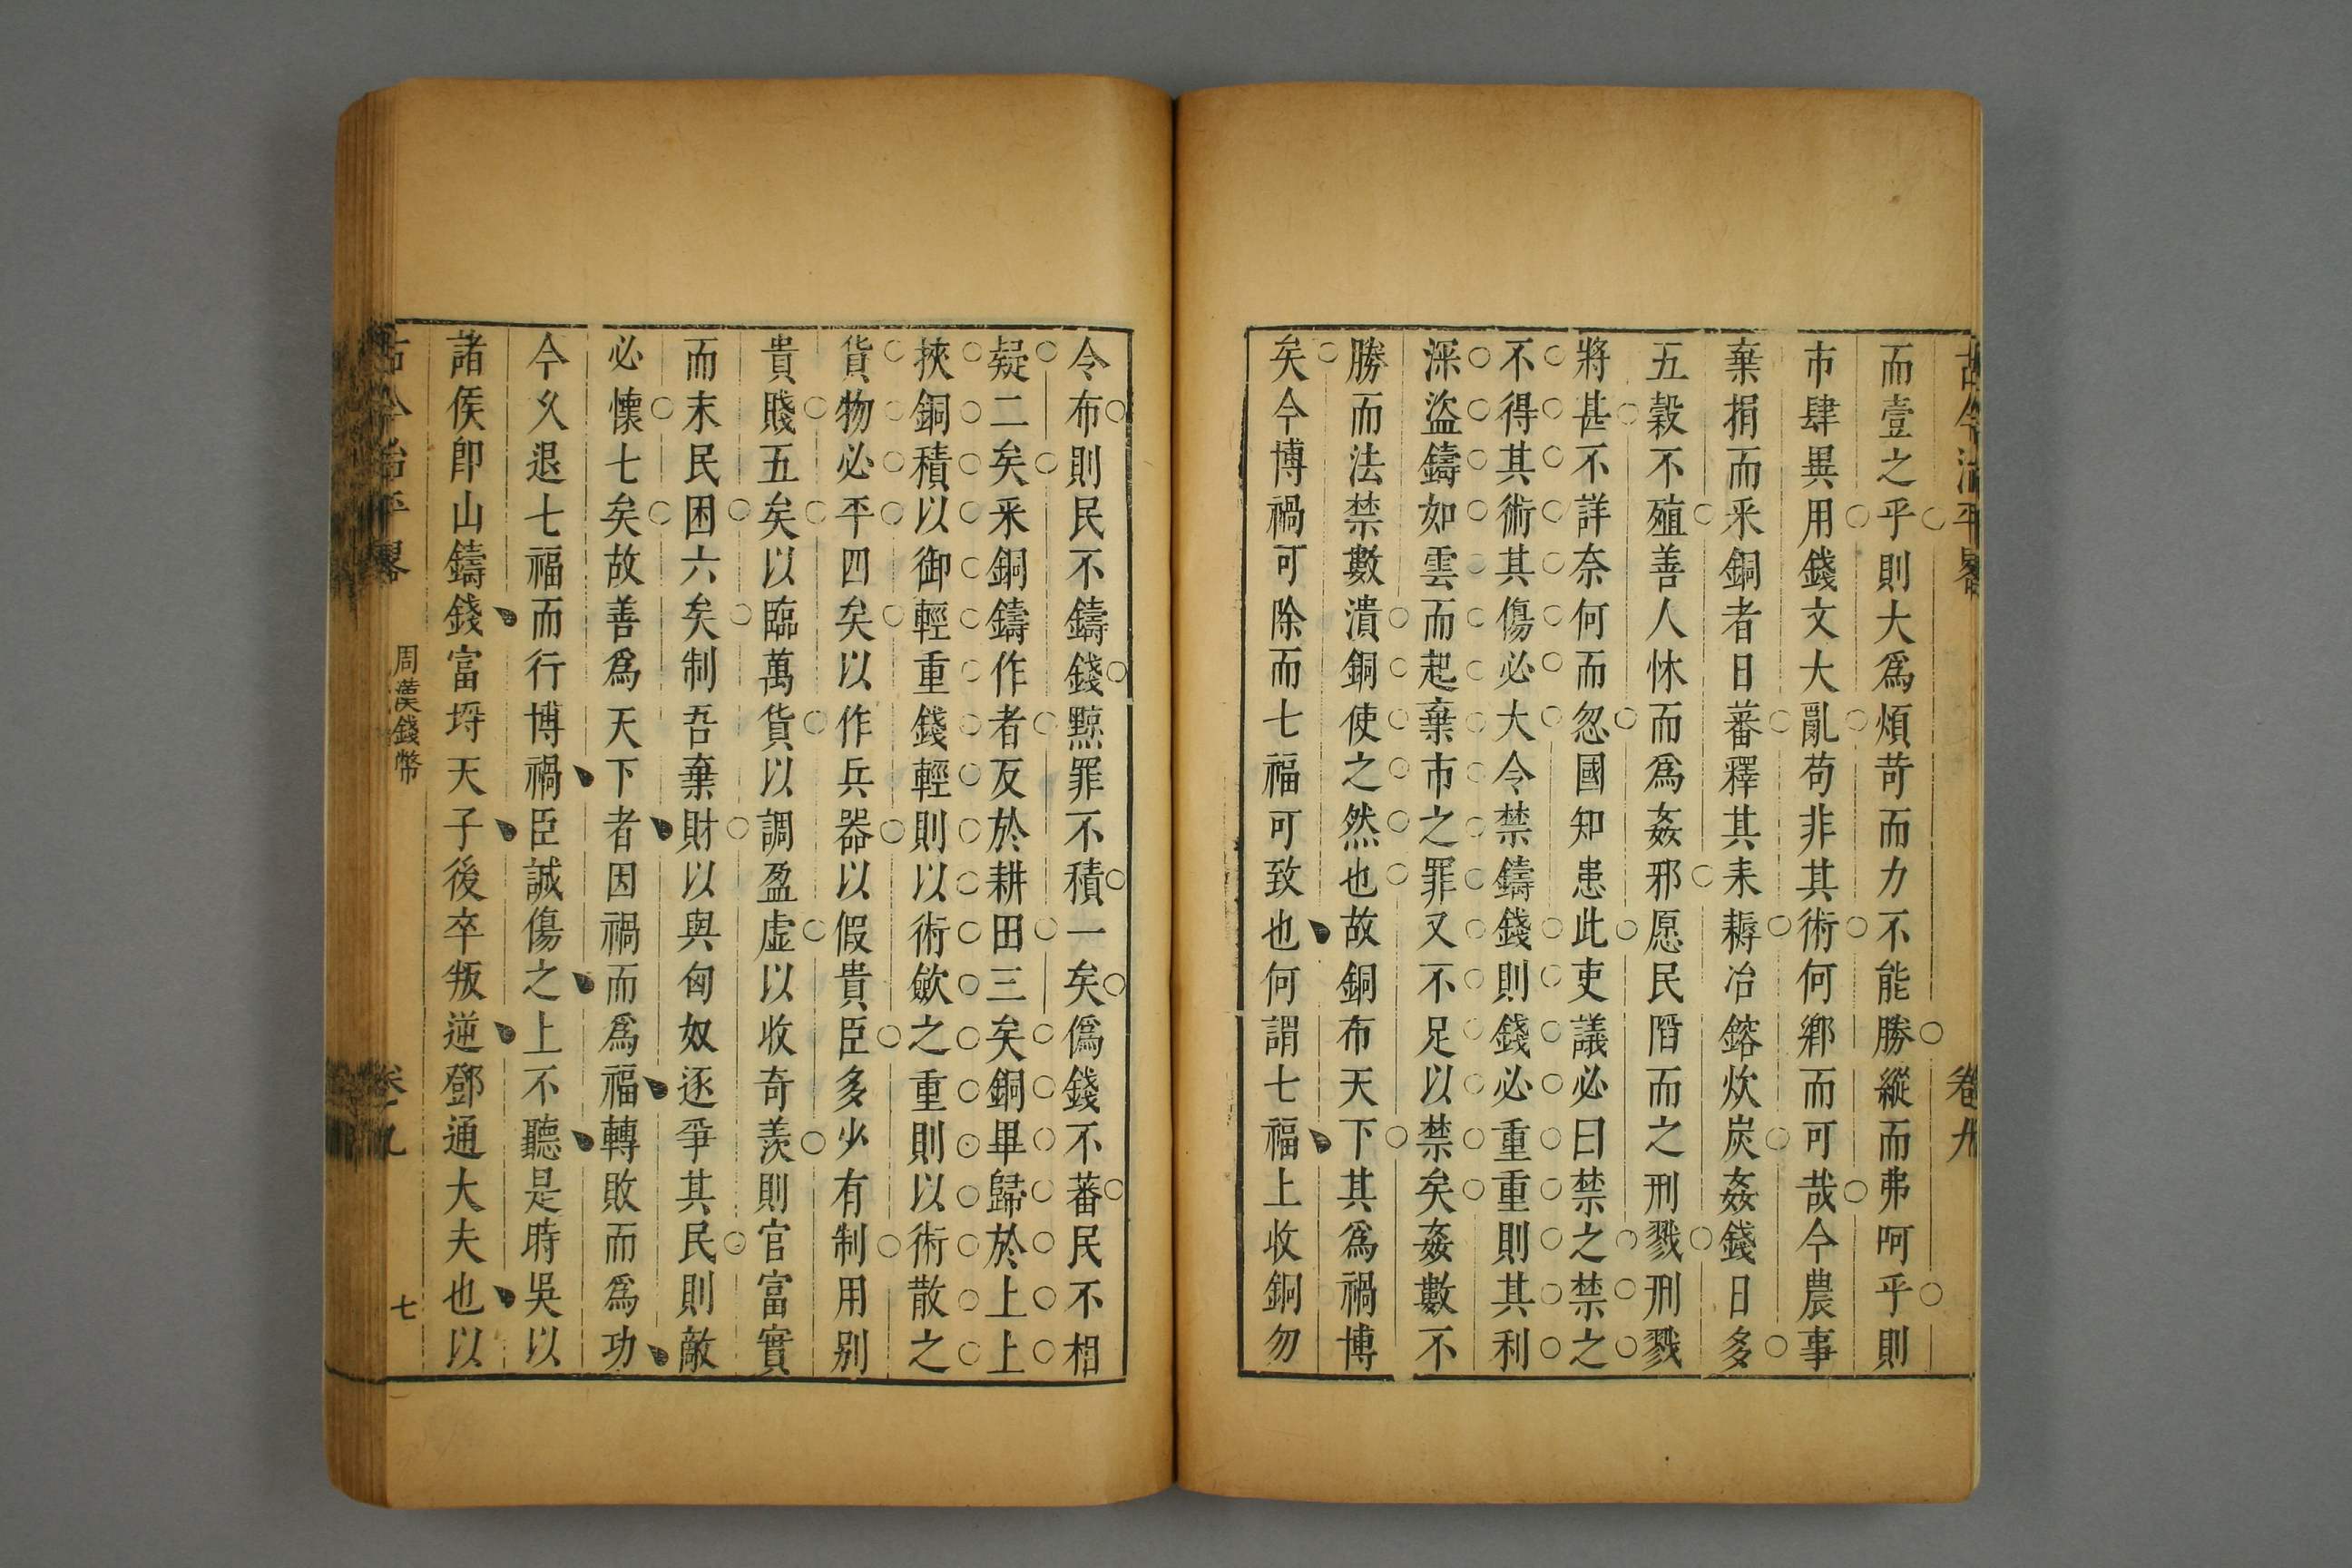 古今治平畧
卷九
而壹之乎則大爲煩苛而力不能勝縱而弗呵乎則
市肆異用錢文大亂苟非其術何鄕而可哉今農事
棄捐而釆銅者日蕃釋其耒耨冶鎔炊炭姦錢日多
五穀不殖善人怵而爲姦邪愿民陷而之刑戮刑戮
將甚不詳奈何而忽國知患此吏議必曰禁之禁之
不得其術其傷必大令禁鑄錢則錢必重重則其利
深盜鑄如雲而起棄市之罪又不足以禁矣姦數不
勝而法禁數潰銅使之然也故銅布天下其爲禍博
矣今博禍可除而七福可致也何謂七福上收銅勿
令布則民不鑄錢黥罪不積一矣僞錢不蕃民不相
疑二矣釆銅鑄作者反於耕田三矣銅畢歸於上上
挾銅積以御輕重錢輕則以術歛之重則以術散之
貨物必平四矣以作兵器以假貴臣多少有制用别
貴賤五矣以臨萬貨以調盈虛以收奇羨則官富實
而末民困六矣制吾棄財以與匈奴逐爭其民則敵
必懷七矣故善爲天下者因禍而爲福轉敗而爲功
今久退七福而行博禍臣誠傷之上不聽是時吳以
諸侯卽山鑄錢富埒天子後卒叛逆鄧通大夫也以
古今治平畧
周漢錢幣
卷九
七